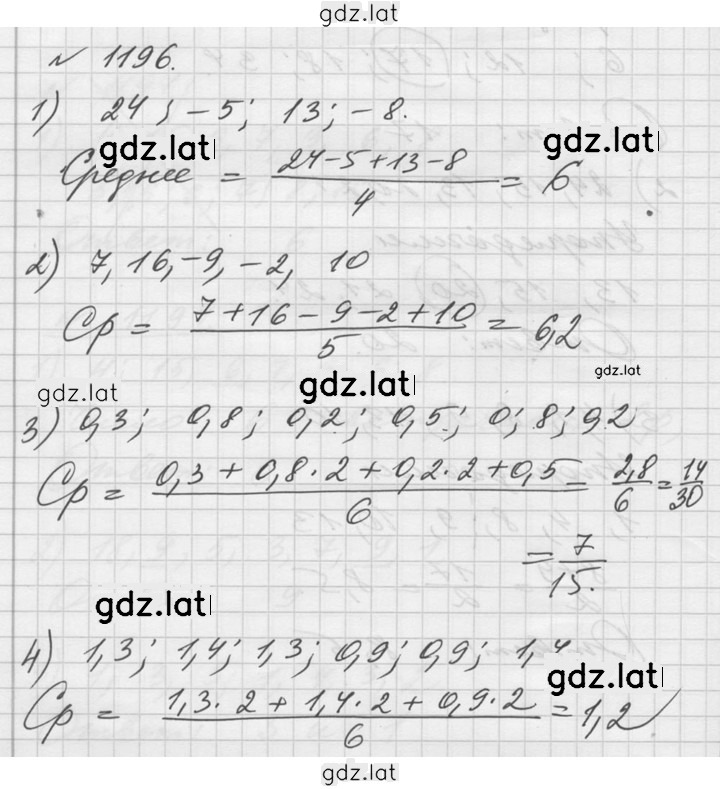 gdz.lat
№ 1196.
1) 24; -5; 13; -8.
gdz.lat gdz.lat
Среднее = (24-5+13-8)/4 = 6
2) 7, 16, -9, -2, 10
Ср = (7+16-9-2+10)/5 = 6,2
gdz.lat gdz.lat gdz.lat
3) 0,3; 0,8; 0,2; 0,5; 0; 8; 0,2
Ср = (0,3+0,8·2+0,2·2+0,5)/6 = 2,8/6 = 14/30
= 7/15.
gdz.lat
4) 1,3; 1,4; 1,3; 0,9; 0,9; 1,4
gdz.lat
Ср = (1,3·2+1,4·2+0,9·2)/6 = 1,2
gdz.lat